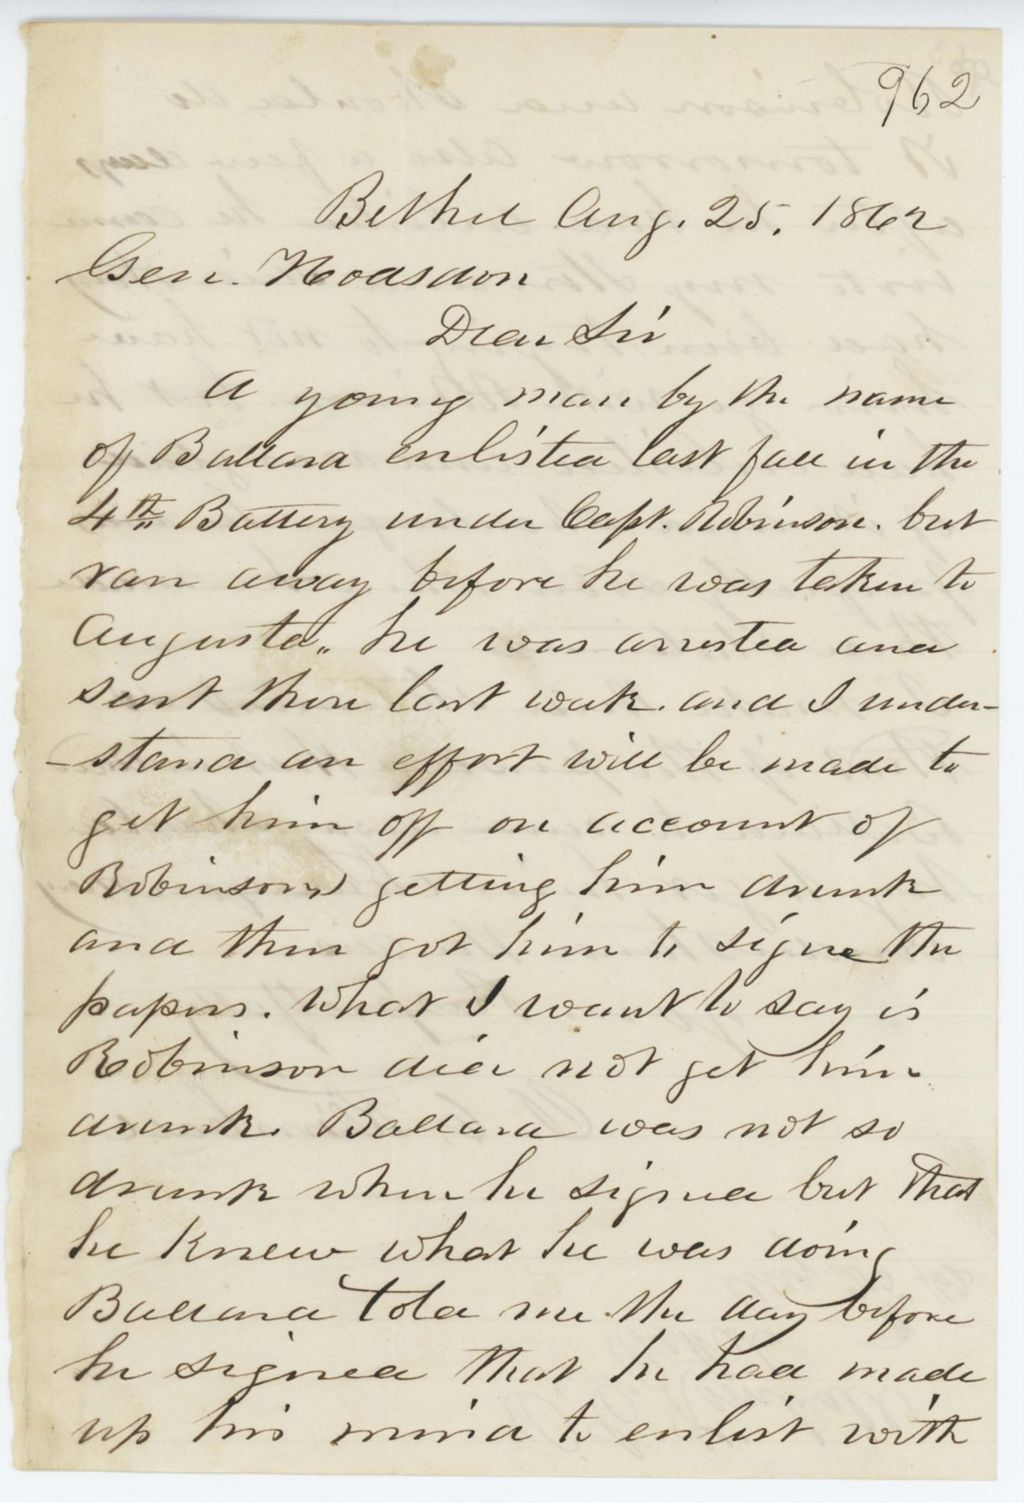 962
Bethel Aug. 25, 1862
Gen. Hodsdon
Dear Sir
A young man by the name
of Ballard enlisted last fall in the
4th Battery under Capt. Robinson. but
ran away before he was taken to
Augusta,, he was arrested and
sent there last week. and I under-
-stand an effort will be made to
get him off on account of
Robinson getting him drunk
and then got him to signe the
papers. What I want to say is
Robinson did not get him
drunk. Ballard was not so
drunk when he signed but that
he knew what he was doing
Ballard told me the day before
he signed that he had made
up his mind to enlist with